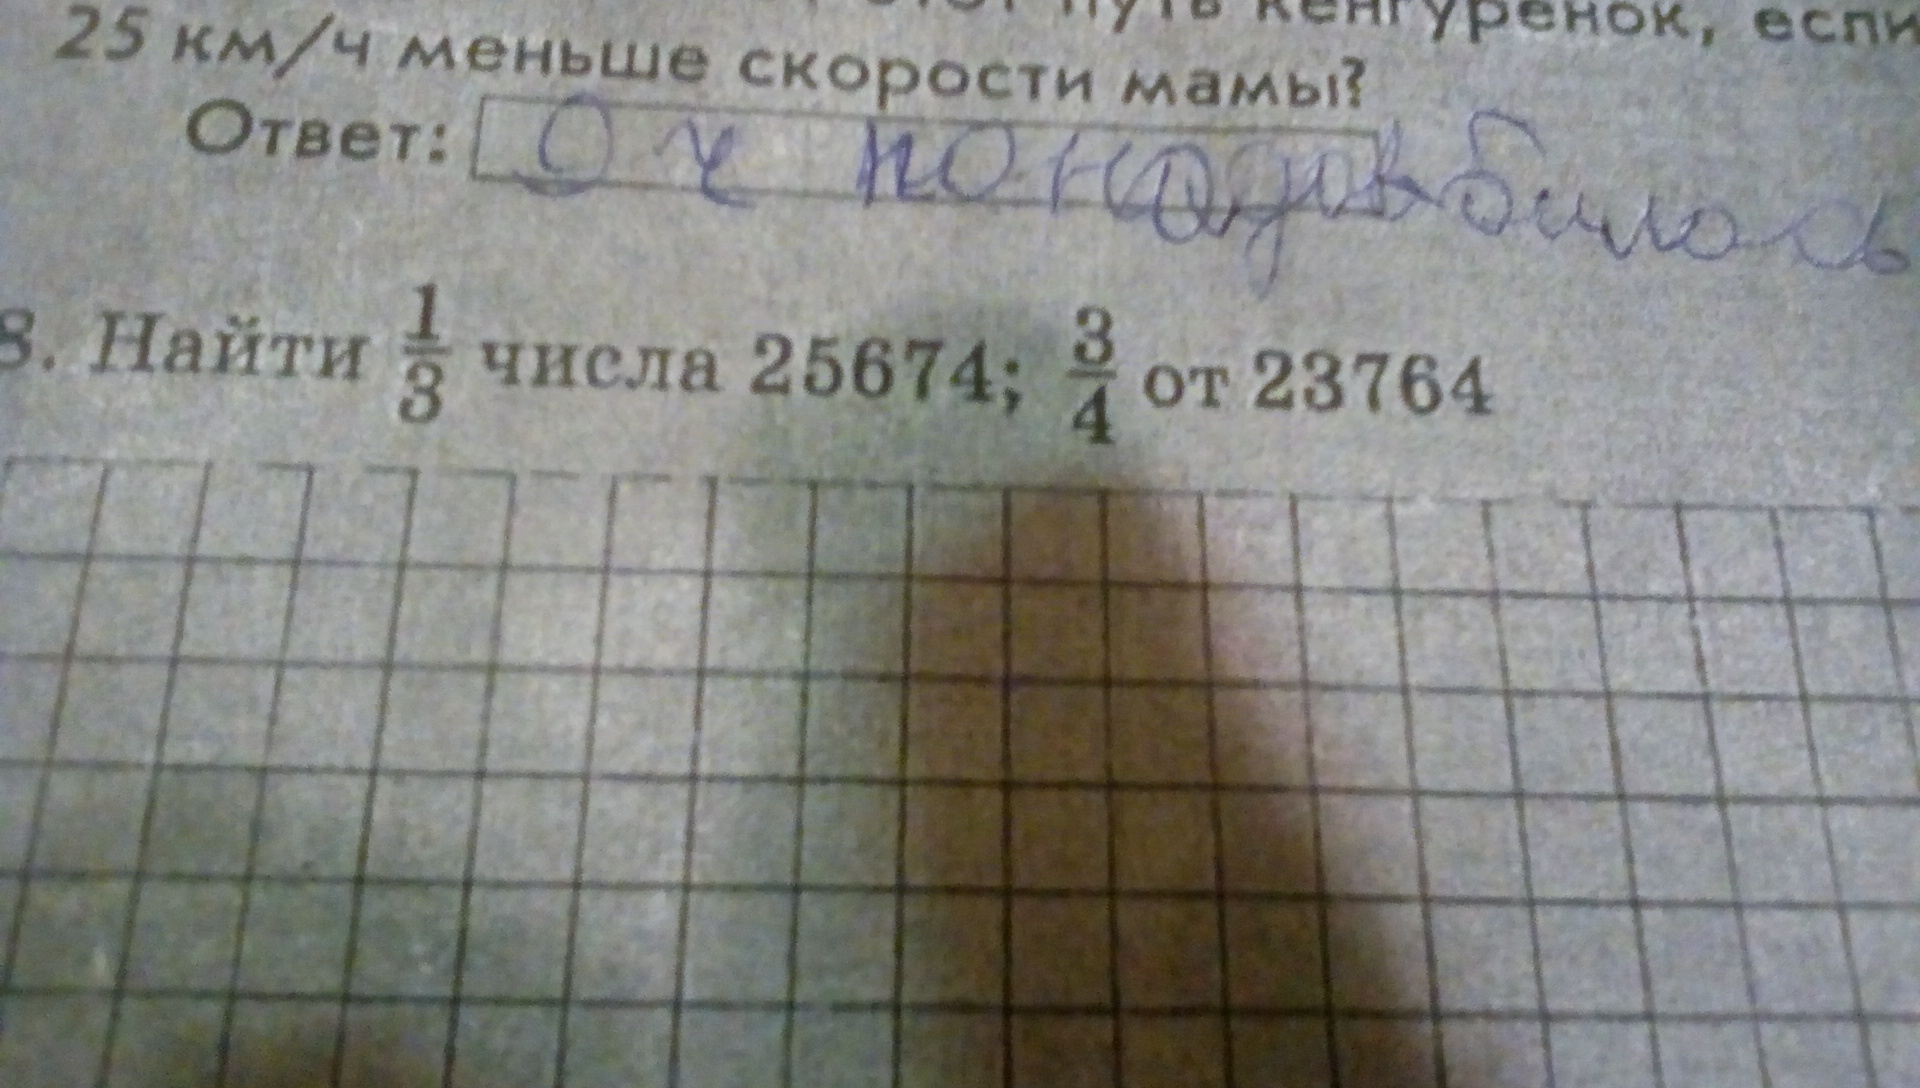 путь кенгурёнок, если
25 км/ч меньше скорости мамы?
Ответ: ч понадобилось
8. Найти 1/3 числа 25674; 3/4 от 23764